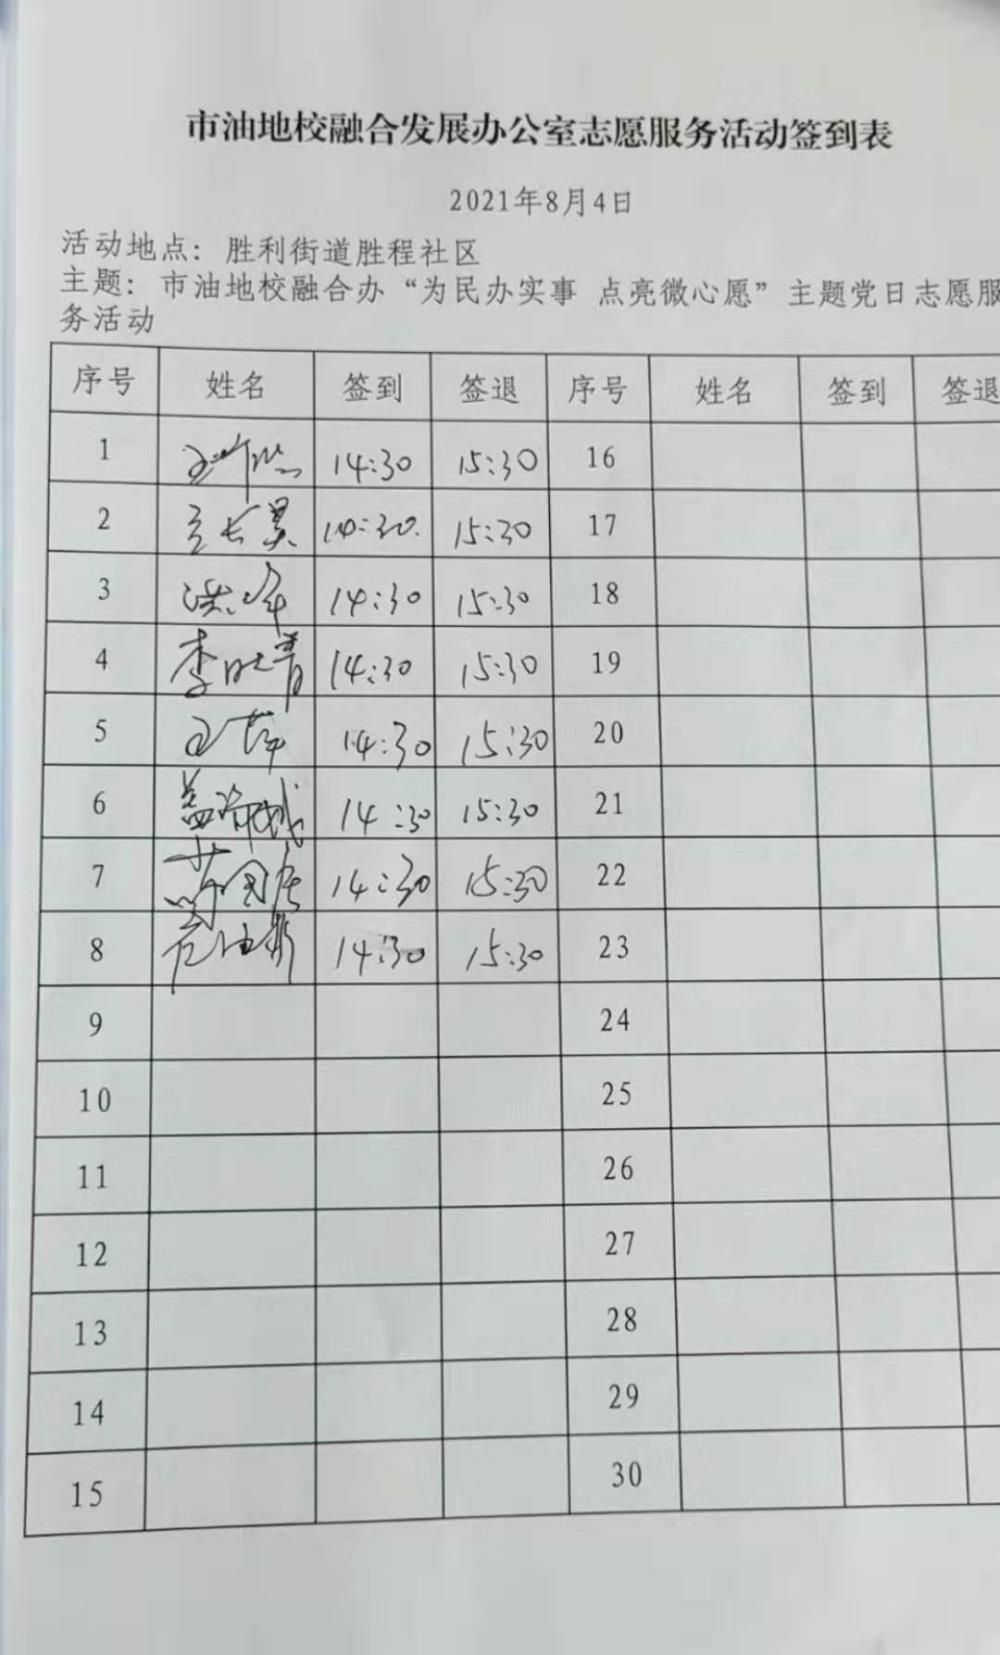 市油地校融合发展办公室志愿服务活动签到表
2021年8月4日
活动地点：胜利街道胜程社区
主题：市油地校融合办“为民办实事 点亮微心愿”主题党日志愿服
务活动
序号 姓名 签到 签退 序号 姓名 签到 签退
1 14:30 15:30 16
2 14:30 15:30 17
3 洪峰 14:30 15:30 18
4 李晓青 14:30 15:30 19
5 王萍 14:30 15:30 20
6 14:30 15:30 21
7 14:30 15:30 22
8 14:30 15:30 23
9 24
10 25
11 26
12 27
13 28
14 29
15 30